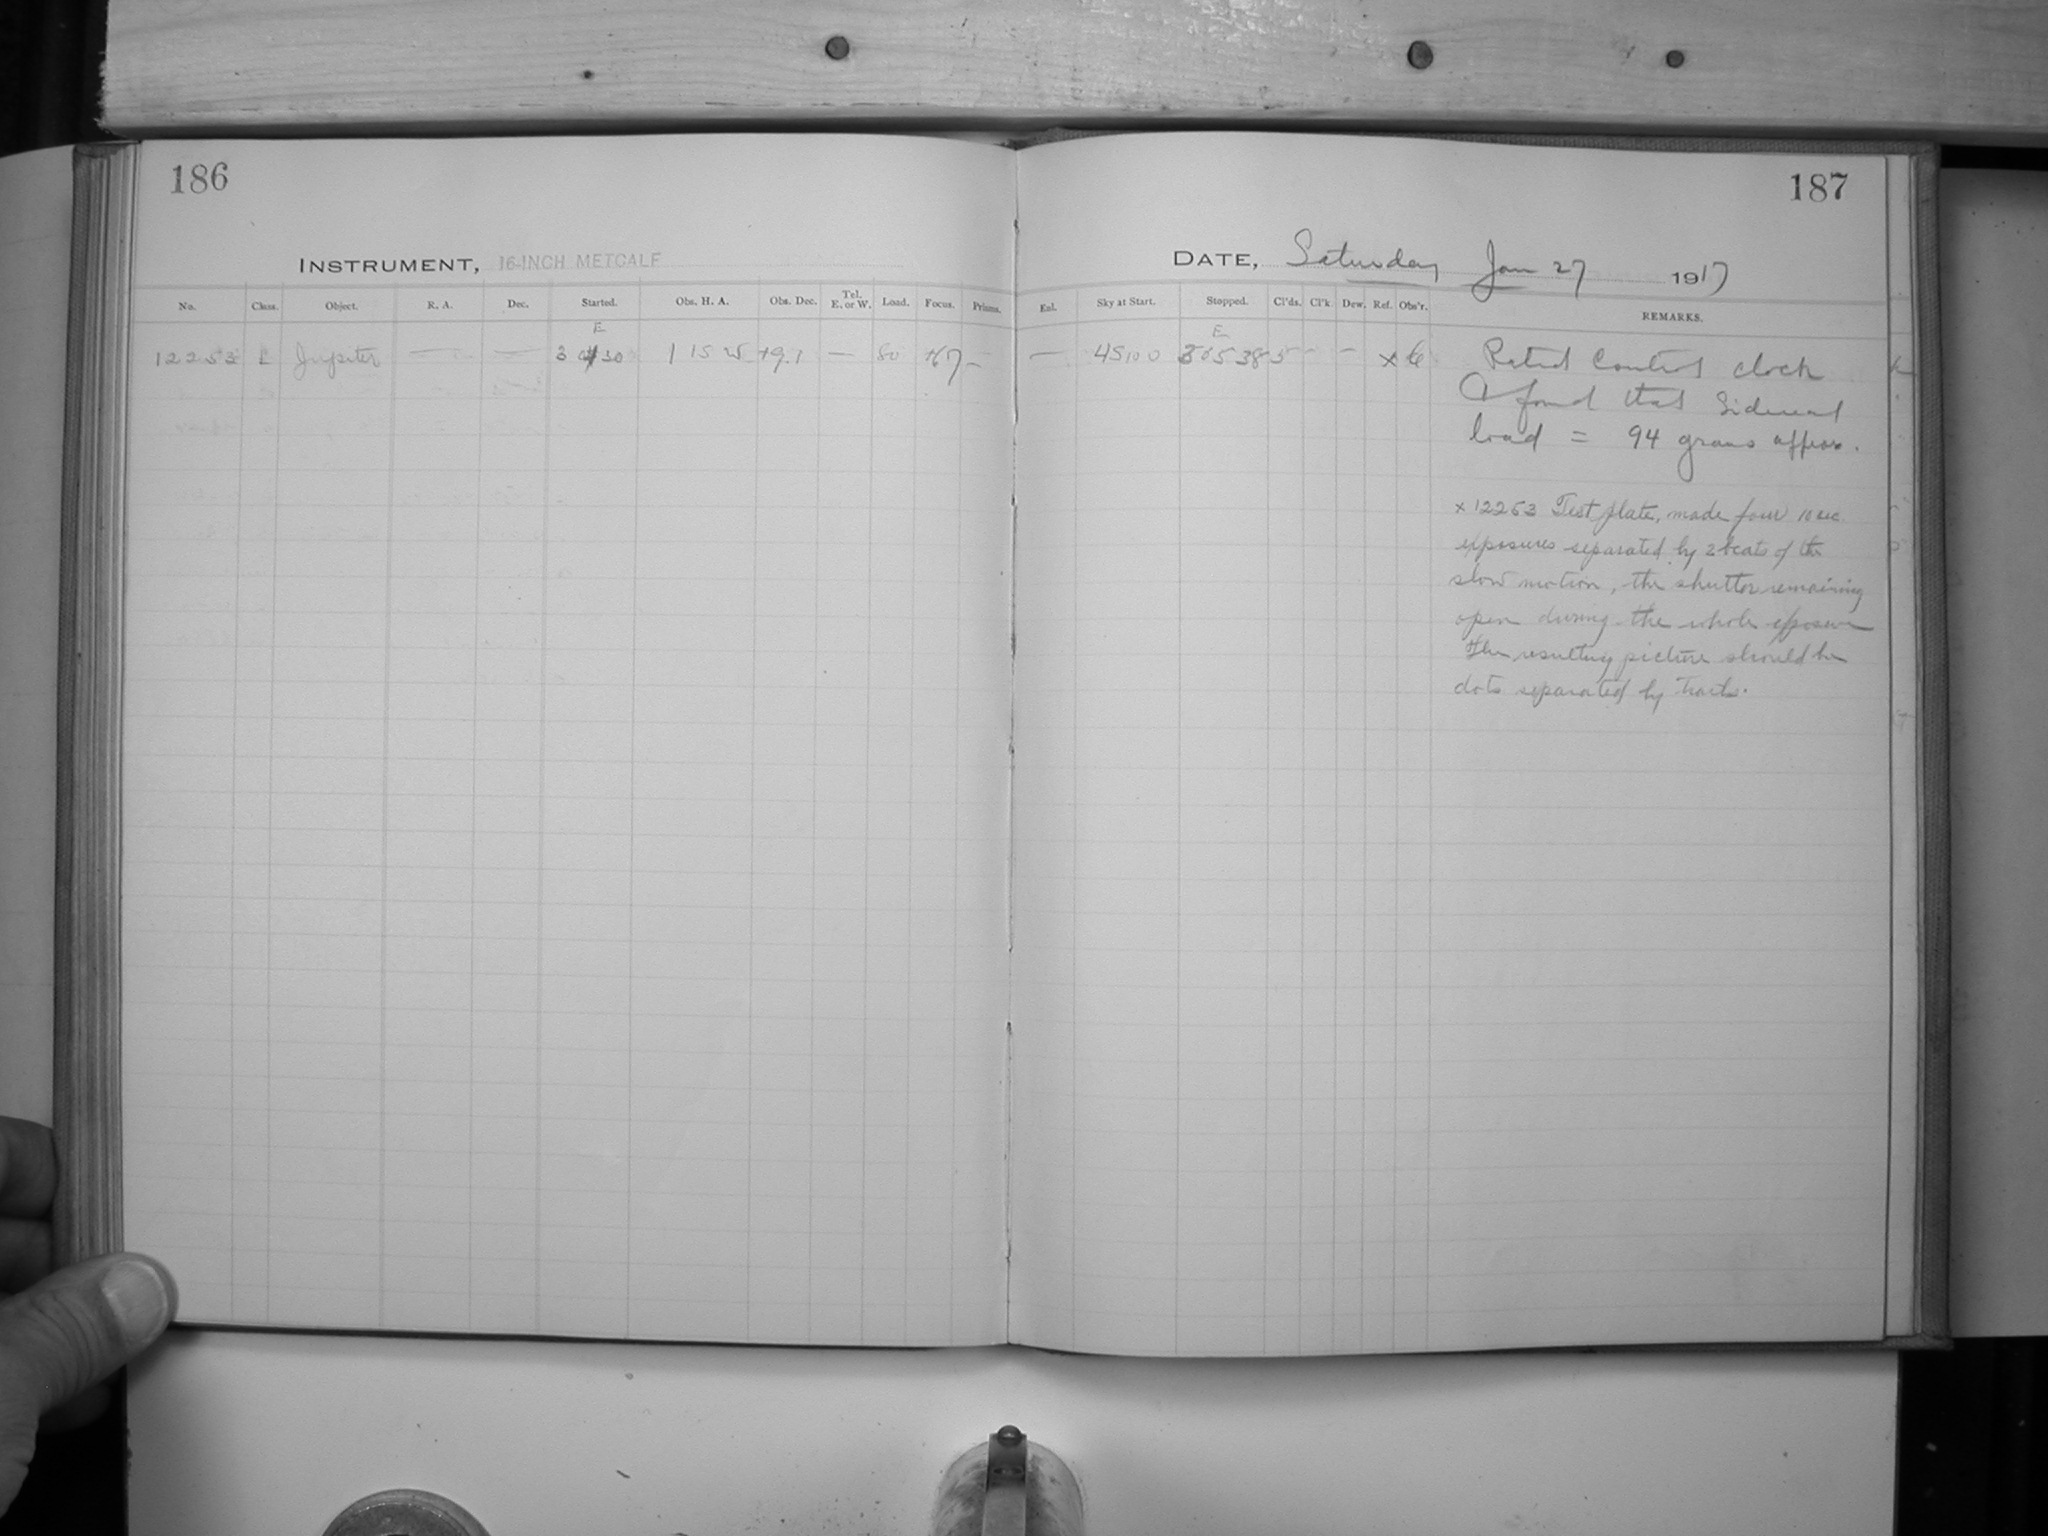 186
187
INSTRUMENT, 16-INCH METCALF
DATE, Saturday Jan 27 1917
No. Class. Object. R. A. Dec. Started. Obs. H. A. Obs. Dec. Tel. E. or W. Load. Focus. Prisms. Enl. Sky at Start. Stopped. Cl'ds. Cl'k. Dew. Ref. Obs'r. REMARKS.
E E
12253 L Jupiter — — 30 1 15 W +9.1 — 80 +67 – — 45100 – – × Rated Control clock
& found that Sidereal
load = 94 grams approx.
× 12253 Test plate, made four 10 sec.
exposures separated by 2 beats of the
slow motion, the shutter remaining
open during the whole exposure
The resulting picture should be
dots separated by trails.